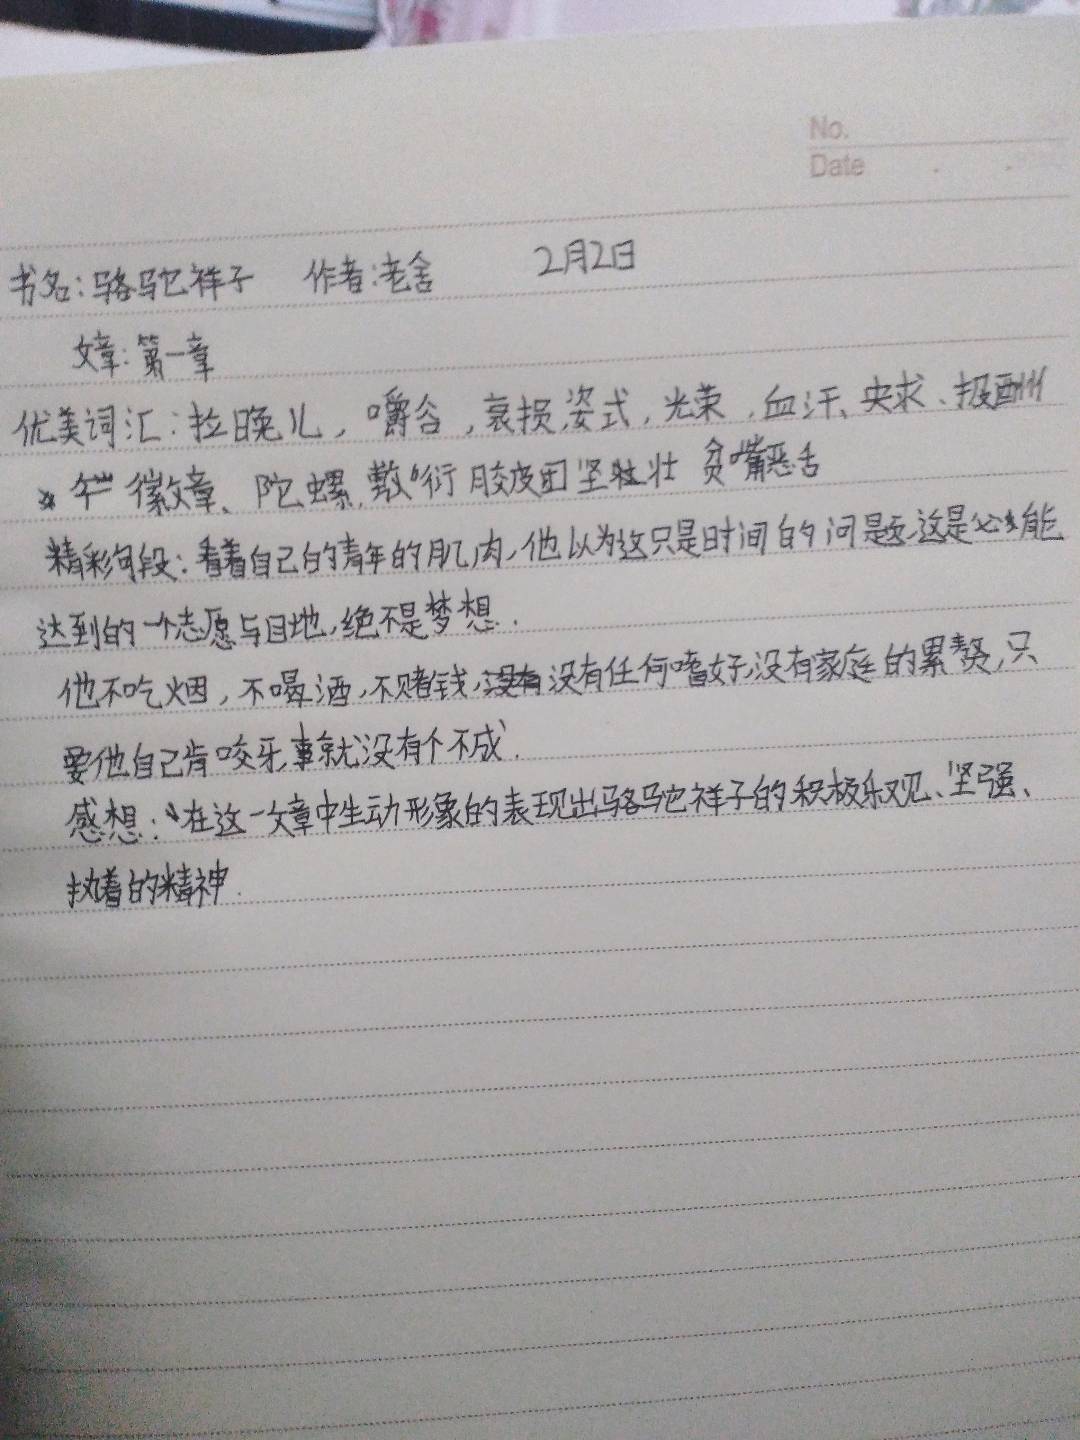 No.
Date
书名:骆驼祥子 作者:老舍 2月2日
文章:第一章
优美词汇:拉晚儿,嚼谷,衰损,姿式,光荣,血汗、央求、报酬
徽章、陀螺,敷衍 胶皮团 坚壮 贫嘴恶舌
精彩句段:看着自己的青年的肌肉,他以为这只是时间的问题,这是必能
达到的一个志愿与目地,绝不是梦想.
他不吃烟,不喝酒,不赌钱,没有任何嗜好,没有家庭的累赘,只
要他自己肯咬牙,事就没有个不成.
感想:在这一文章中生动形象的表现出骆驼祥子的积极乐观、坚强、
执着的精神.